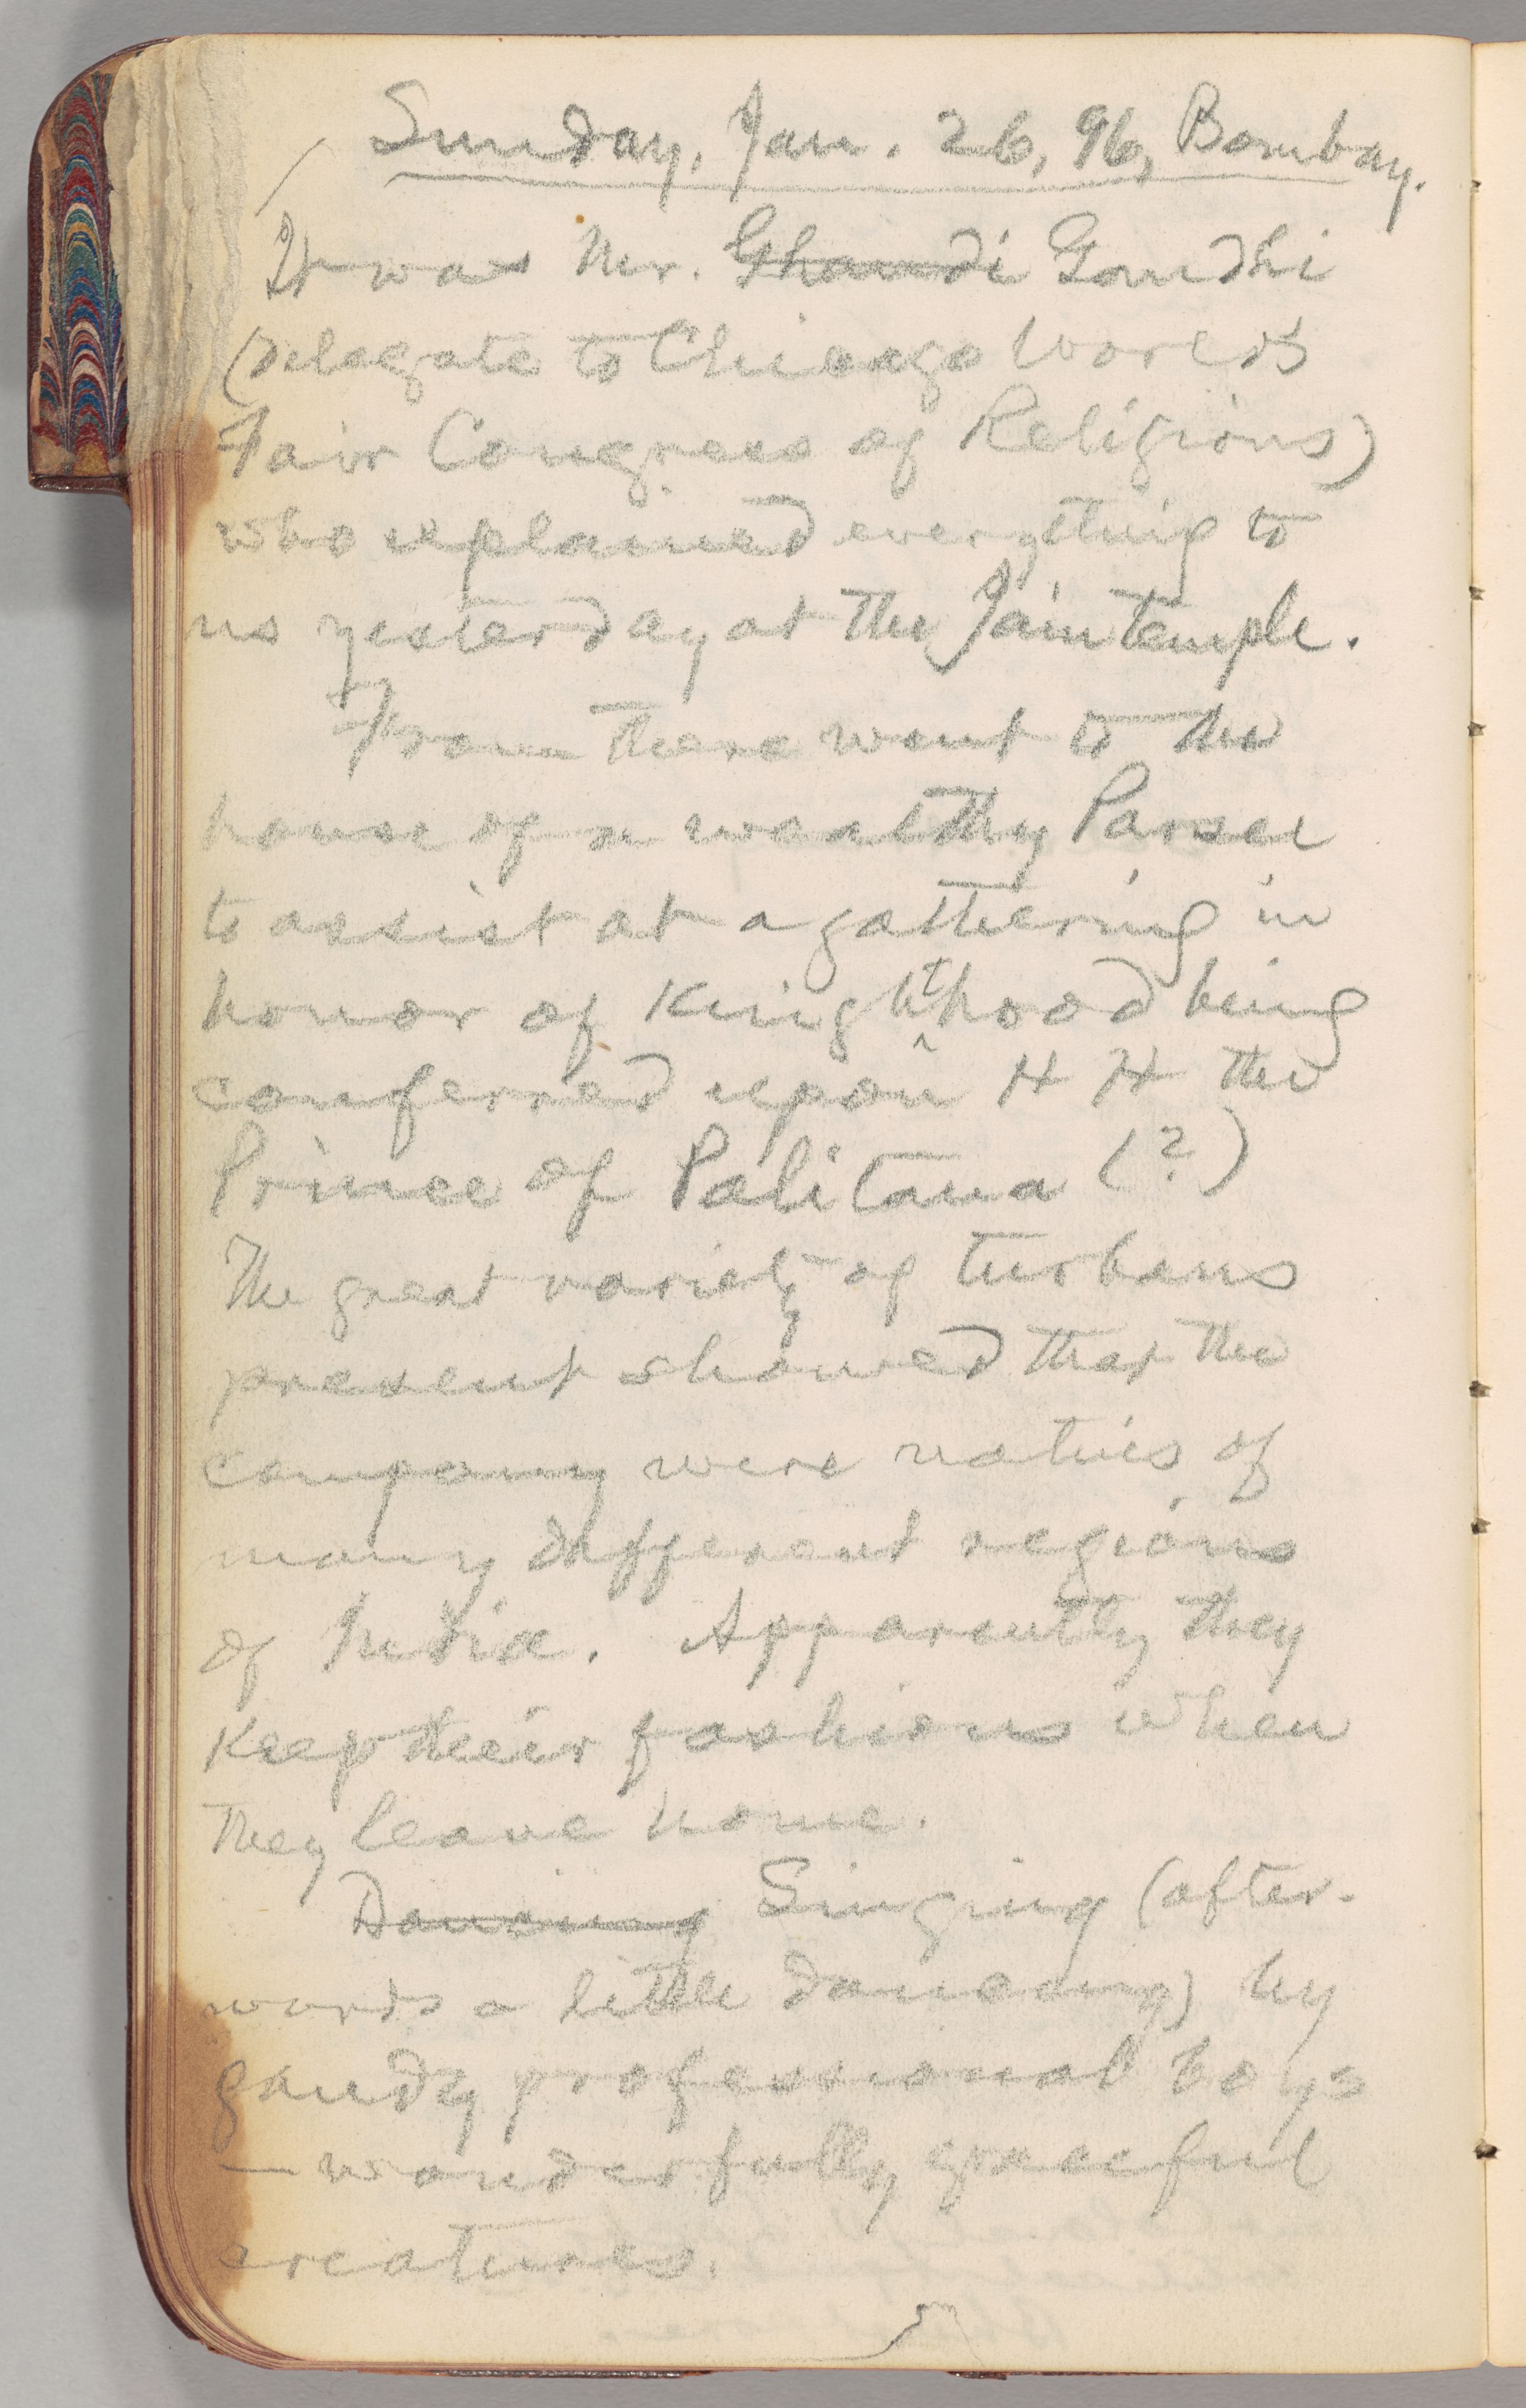 Sunday, Jan. 26, 96, Bombay.
It was Mr. Ghandi Gandhi
(delegate to Chicago World's
Fair Congress of Religions)
who explained everything to
us yesterday at the Jain temple.
From there went to the
house of a wealthy Parsee
to assist at a gathering in
honor of Knighthood being
conferred upon H H the
Prince of Palitana (?)
The great variety of turbans
present showed that the
company were natives of
many different regions
of India. Apparently they
keep their fashions when
they leave home.
Dancing Singing (after-
wards a little dancing) by
gaudy professional boys
— wonderfully graceful
creatures.